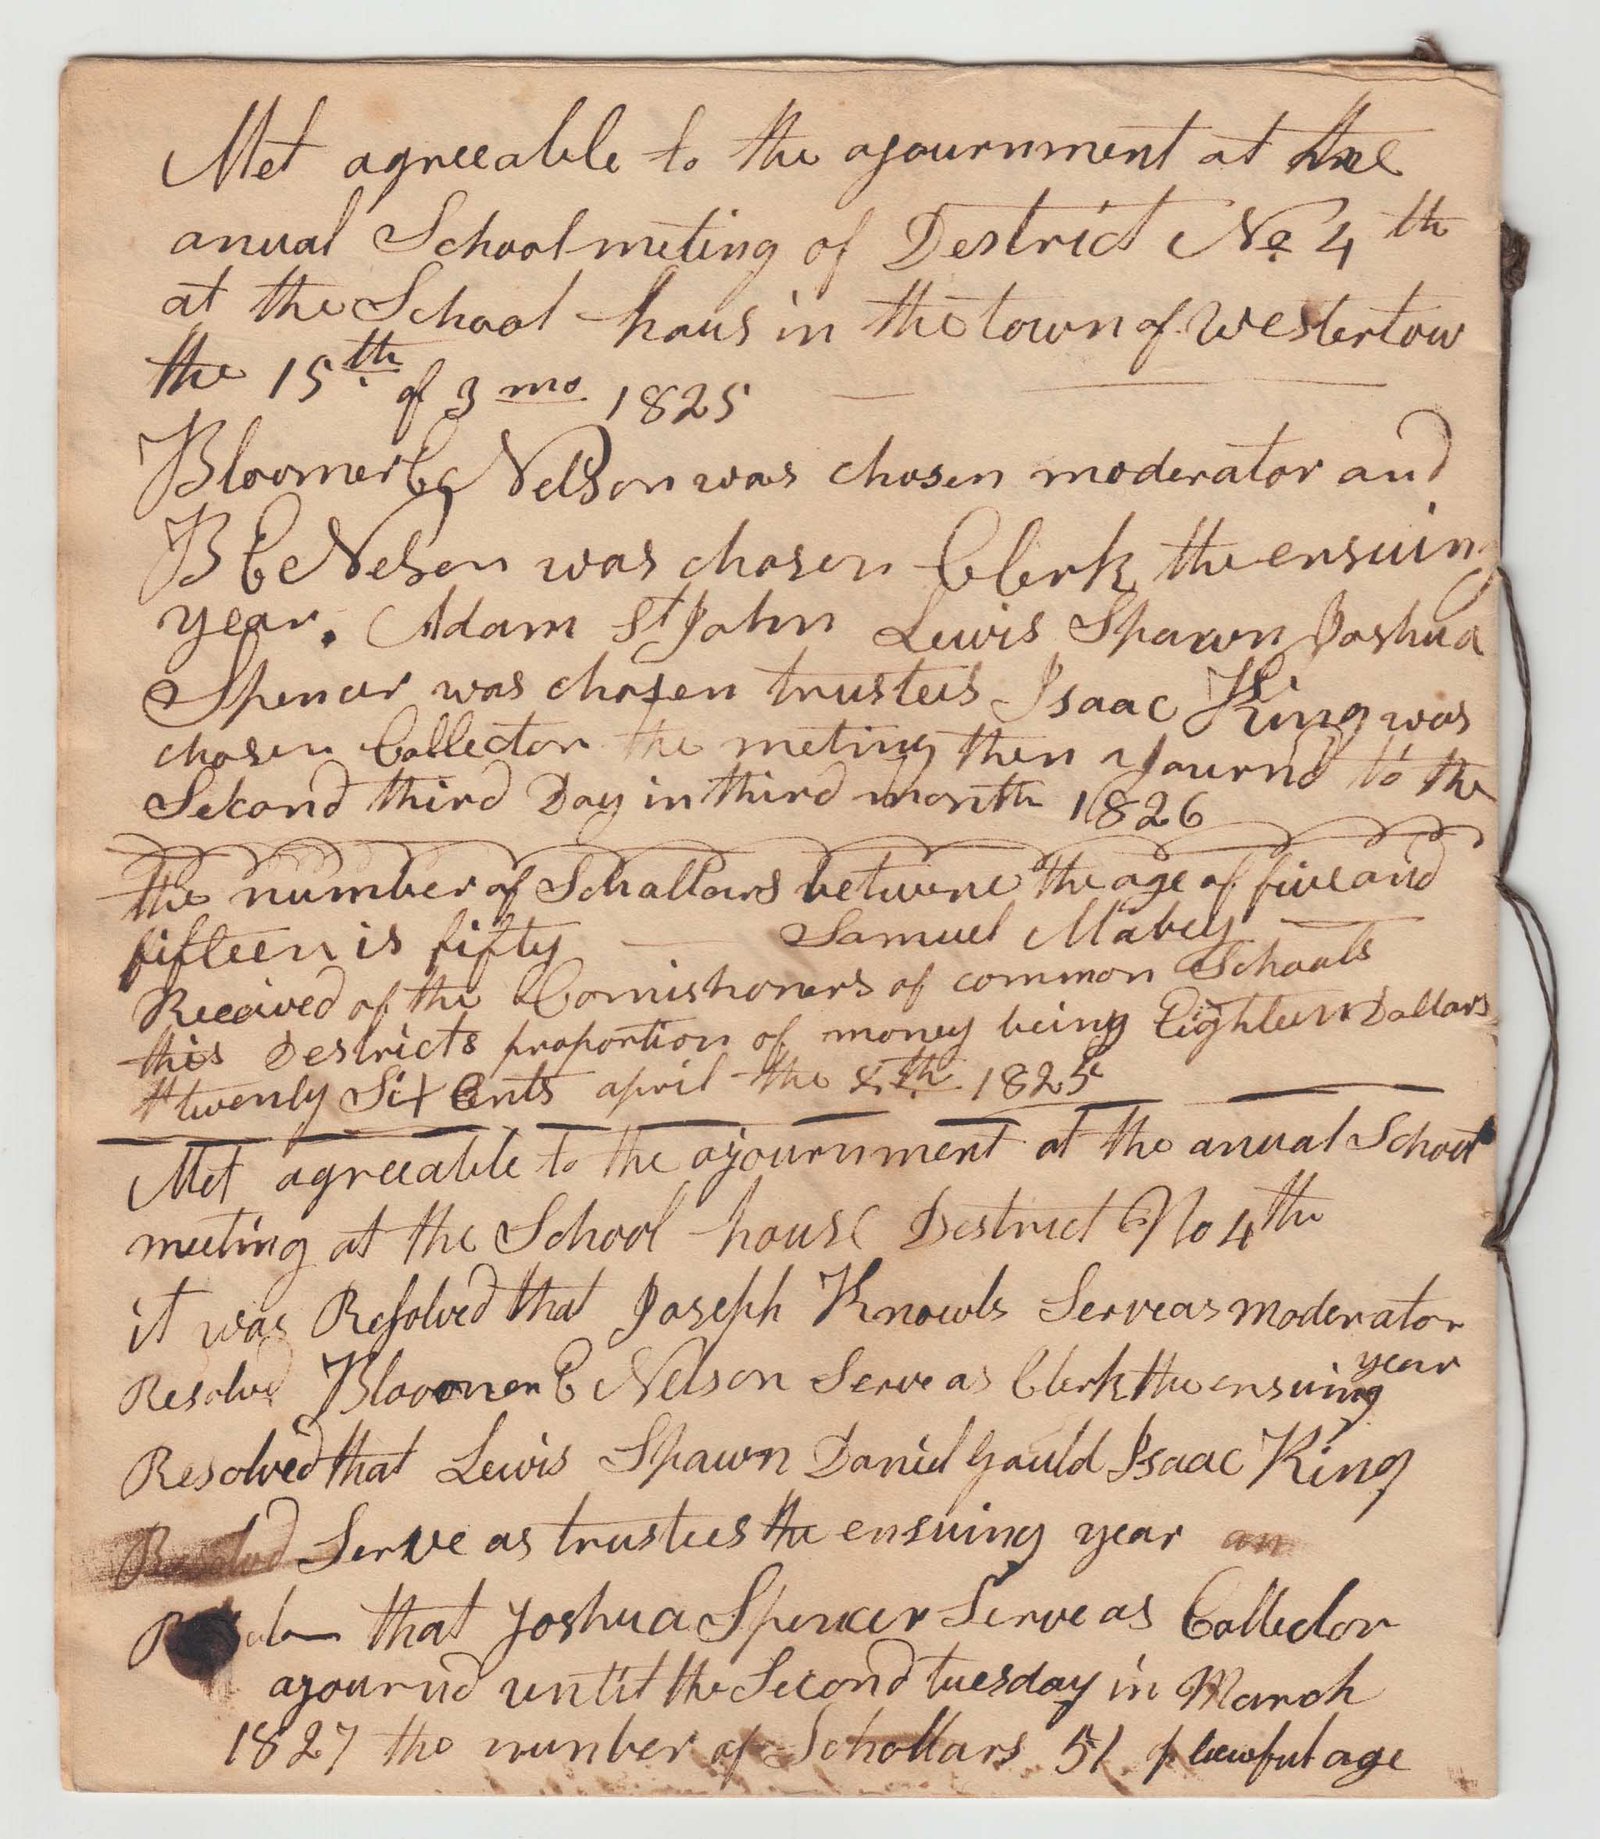 Met agreeable to the ajournment at the
anual School meting of Destrict No. 4th
at the School hous in the town of Westertow
the 15th of 3 mo 1825
Bloomer C Nelson was chosen moderator and
B C Nelson was chosen Clerk the ensuing
year. Adam St John Lewis Spawn Joshua
Spencer was chosen trustees Isaac King was
chosen Collector the meting then ajournd to the
Second third Day in third month 1826
the number of Schallars betwene the age of five and
fifteen is fifty — Samuel Mabey —
Received of the Comishoners of common Schools
this Destricts proportion of money being Eighteen Dollars
twenty Six Cents april the 8th 1825
Met agreeable to the ajournment at the anual School
meeting at the School house Destrict No 4th
it was Resolved that Joseph Knowls Serve as moderator
Resolved Bloomer C Nelson Serve as Clerk the ensuing year
Resolved that Lewis Spawn Daniel Gauld Isaac King
Resolved Serve as trustees the ensuing year an
that Joshua Spencer Serve as Collector
ajournd untit the Second tuesday in March
1827 the number of Schollars 51 of lawful age